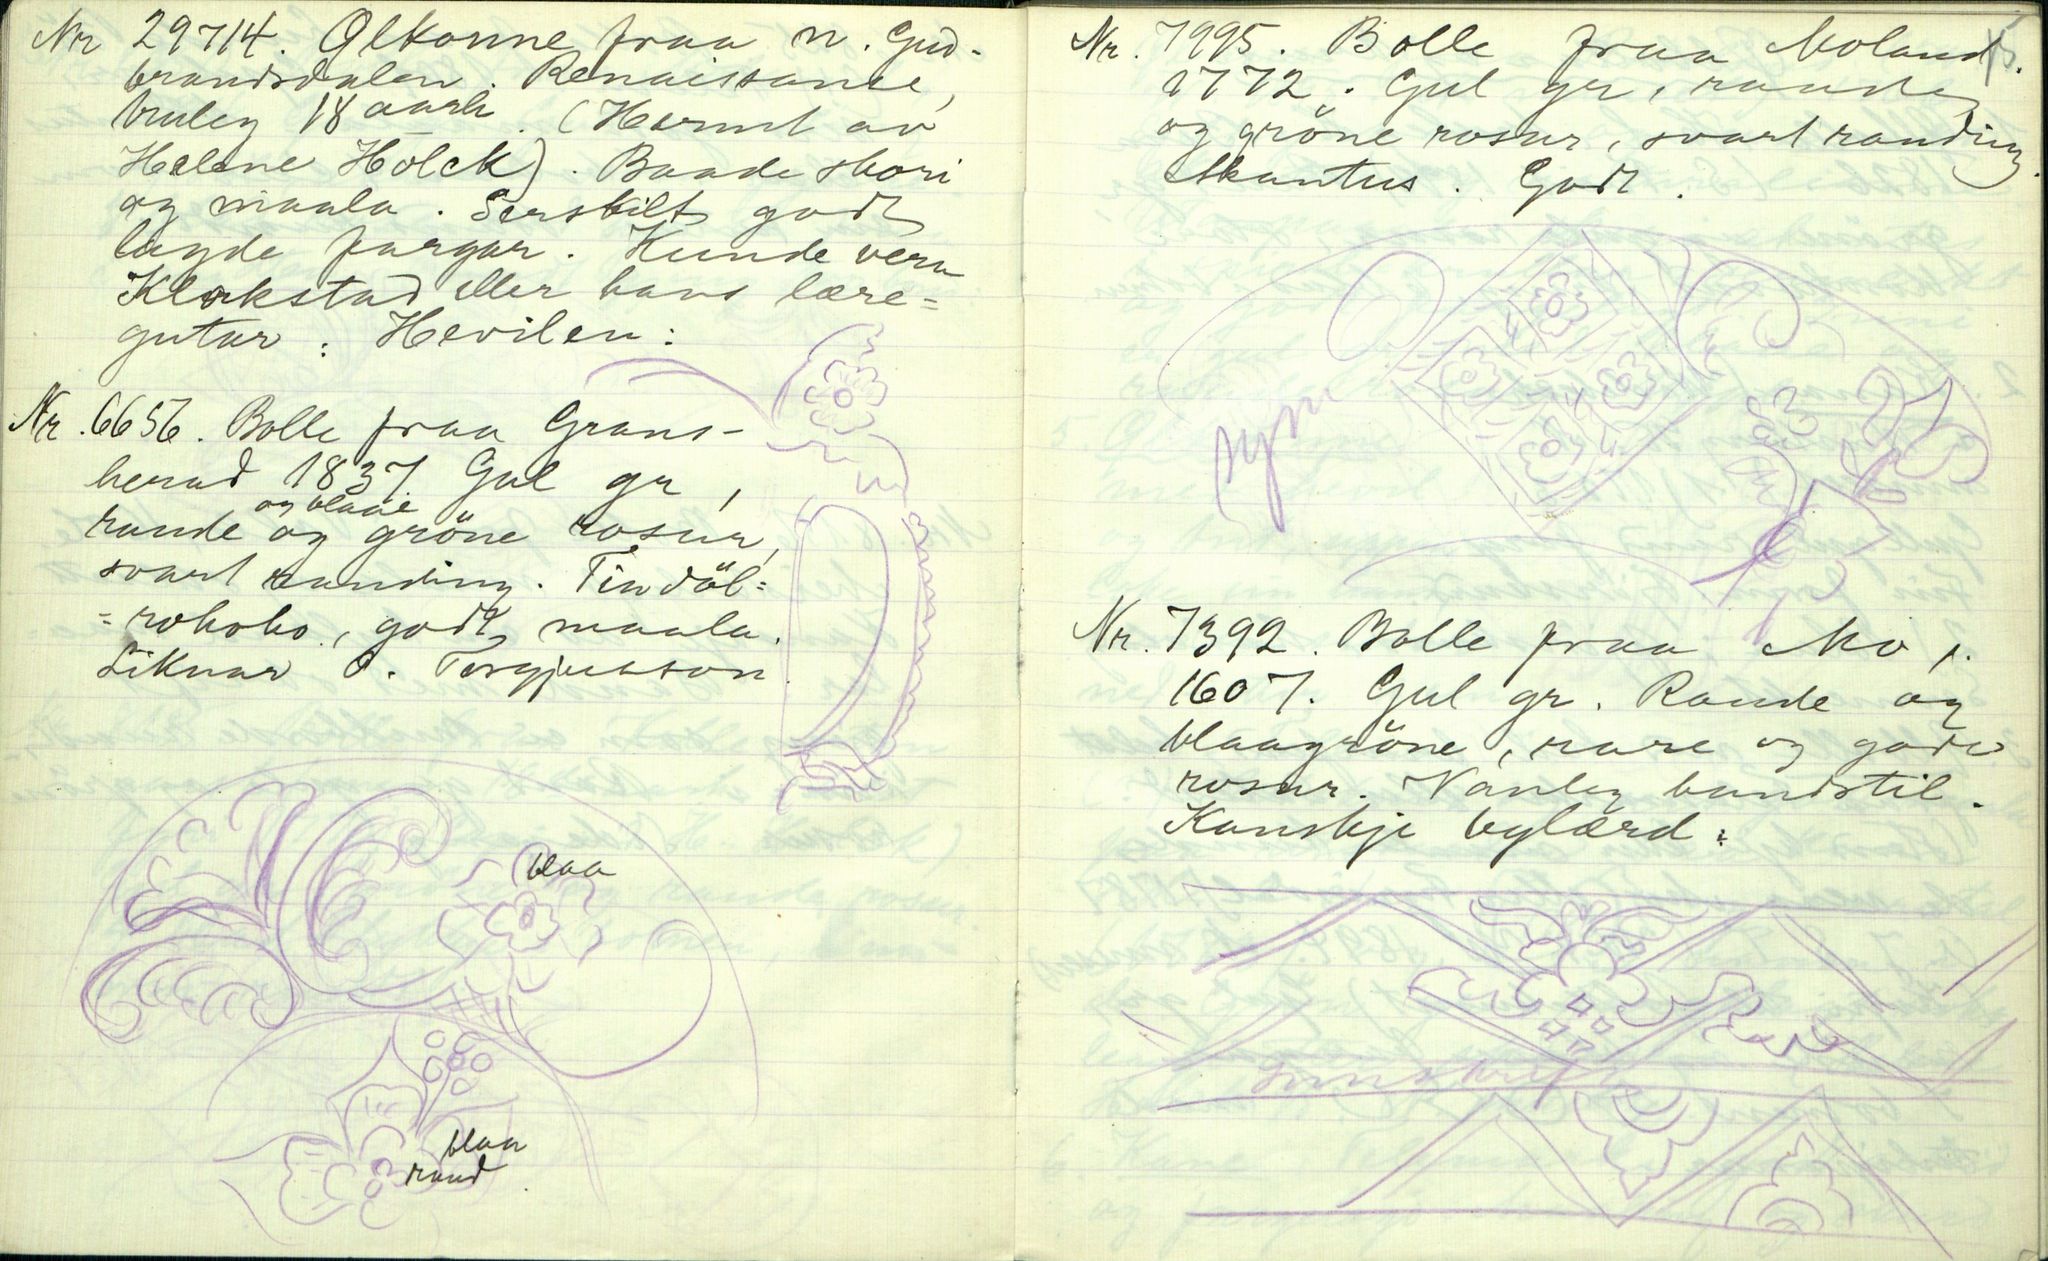 Nr 29714. Ølkanne fraa n. Gud-
brandsdalen. Renaissance,
truleg 18 aarh. (Hermt av
Helene Holck). Baade skori
og maala. Serskilt godt
lagde fargar. Kunde vera
Klokstad eller hans lære=
gutar : Hevilen:
Nr. 6656. Bolle fraa Grans-
herad 1837 Gul gr,
raude og gröne rosur,
og blaae
svart randing. Tindöl=
=rokoko, godt maala.
Liknar O. Torgjusson
blaa
blaa
raud
Nr. 7995. Bolle fraa Moland.
1772. Gul gr, raude
og gröne rosur, svart randing.
Akantus. Godt.
sym
Nr. 7392. Bolle fraa Mo p.
1607. Gul gr. Raude og
blaagröne, rare og gode
rosur. Vanleg bandstil.
Kanskje bylærd: